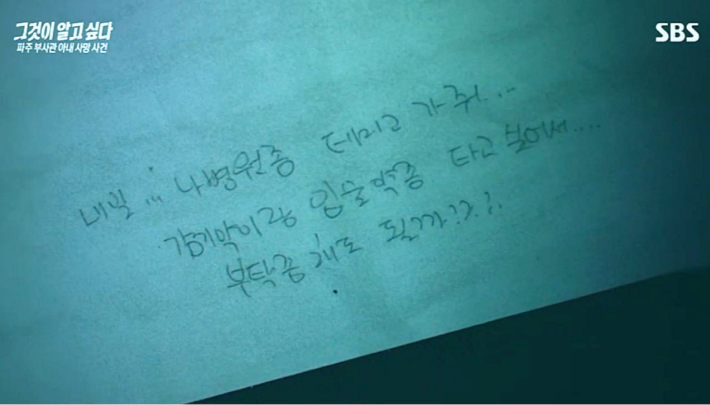 그것이 알고 싶다
파주 부사관 아내 사망 사건
SBS
내일... 나병원좀 데리고 가줘....
감기약이랑 입술약좀 타고 싶어서....
부탁좀 해도 될까?.?.?.